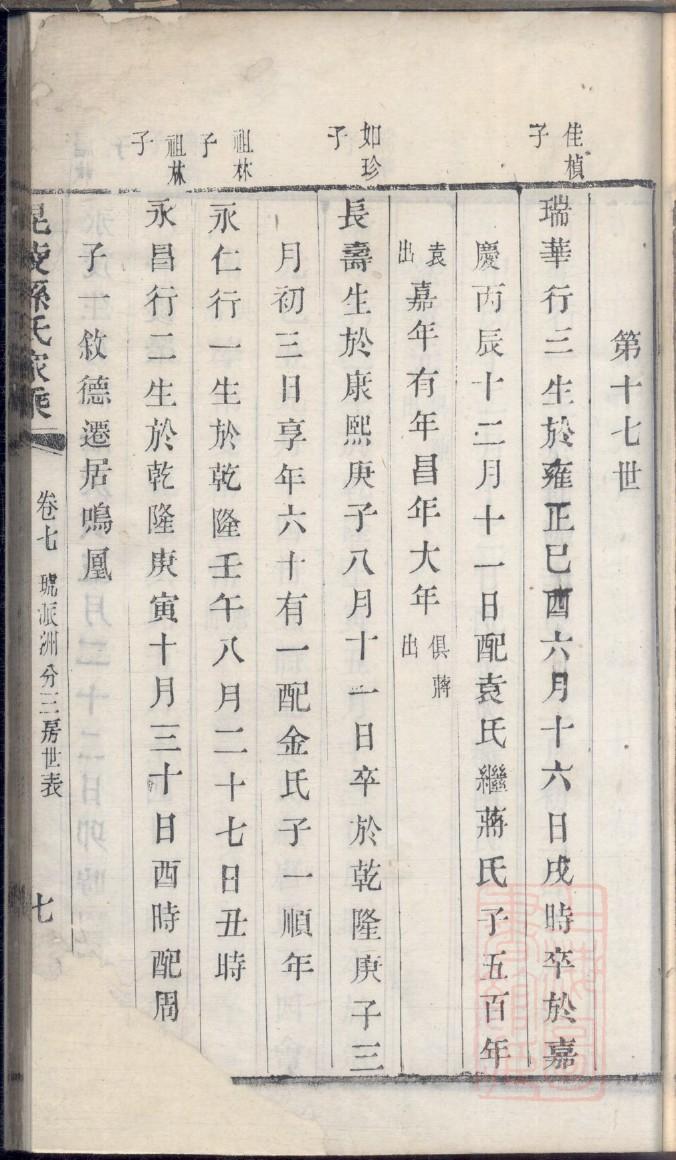 第十七世
佳楨
子
瑞華行三生於雍正己酉六月十六日戌時卒於嘉
慶丙辰十二月十一日配袁氏繼蔣氏子五百年
袁出嘉年有年昌年大年俱蔣出
如珍
子
長壽生於康熙庚子八月十一日卒於乾隆庚子三
月初三日享年六十有一配金氏子一順年
祖林
子
永仁行一生於乾隆壬午八月二十七日丑時
祖林
子
永昌行二生於乾隆庚寅十月三十日酉時配周
子一敘德遷居鳴鳳
毘陵孫氏家乘
卷七
琥派洲分三房世表
七